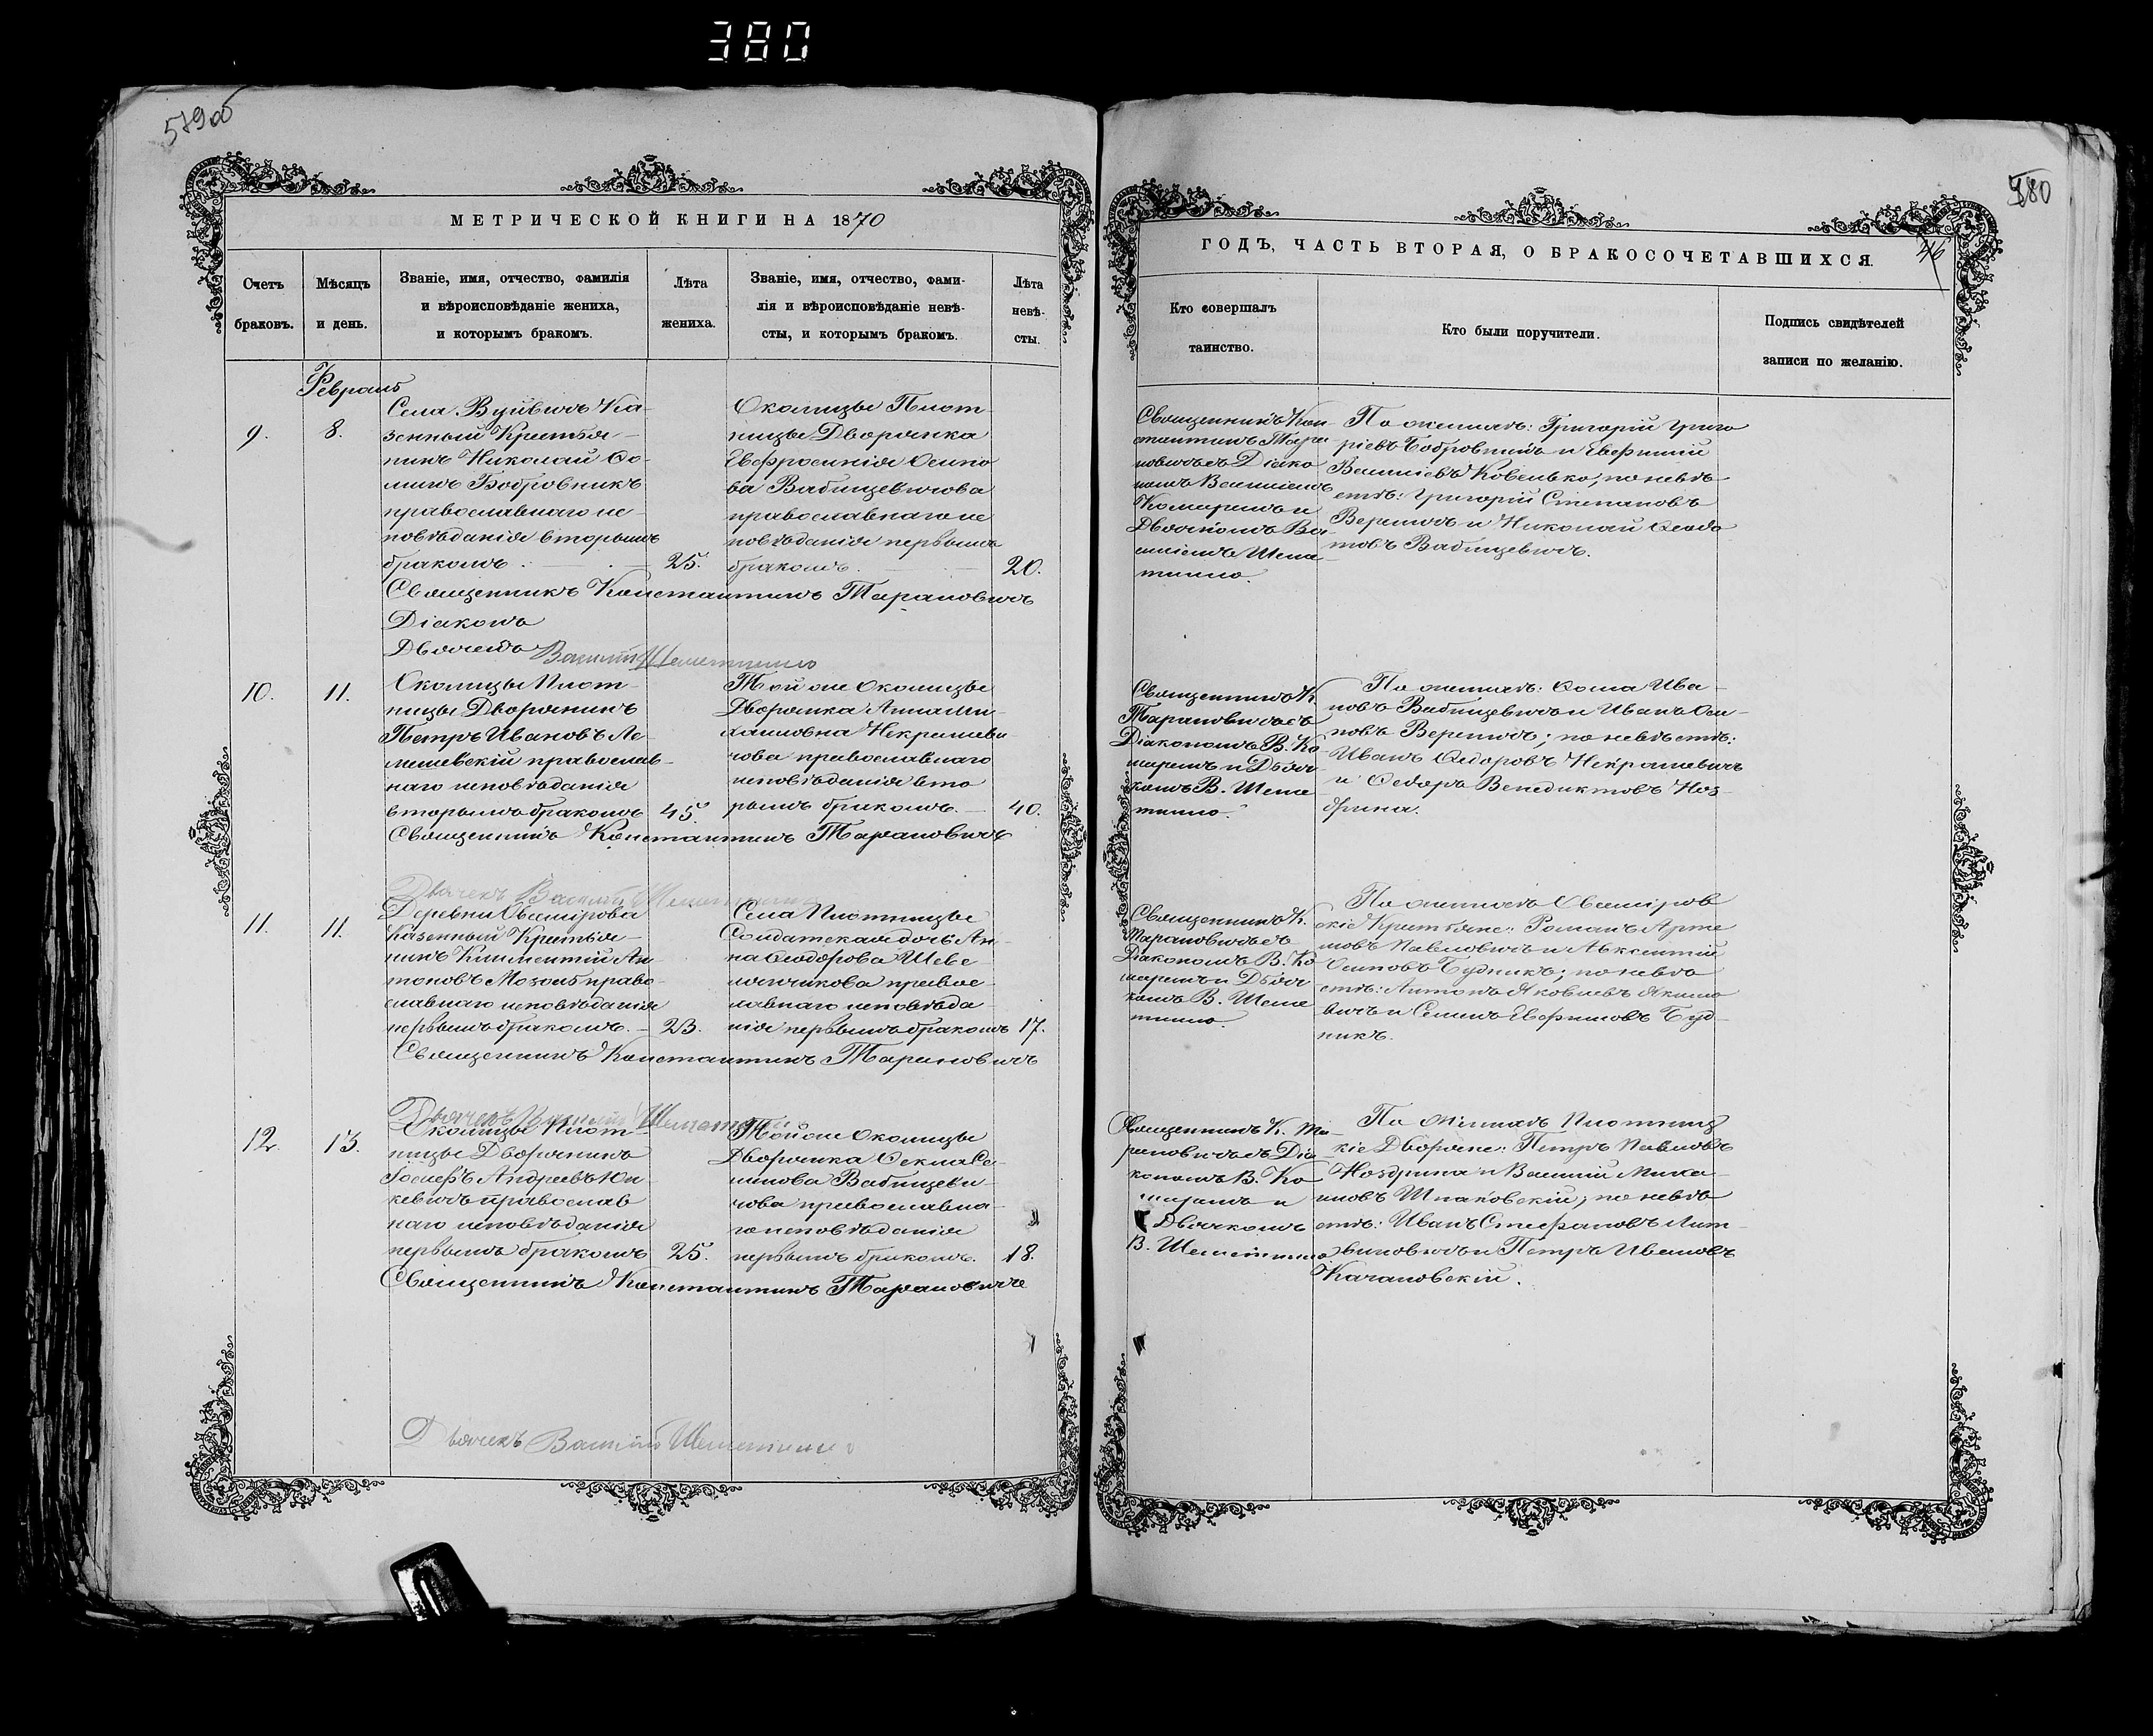 380
579об
МЕТРИЧЕСКОЙ КНИГИ НА 1870
Счетъ браковъ.
Мѣсяцъ и день.
Званіе, имя, отчество, фамилія
и вѣроисповѣданіе жениха,
и которымъ бракомъ.
Лѣта жениха.
Званіе, имя, отчество, фами-
лія и вѣроисповѣданіе невѣ-
сты, и которымъ бракомъ.
Лѣта невѣ-
сты.
Февраль
9.
8.
Села Вуйвичъ Ка-
зенный Крестья-
нинъ Николай Ѳо-
минъ Бобровникъ
православнаго ис-
повѣданія вторымъ
бракомъ.
25.
Околицы Плот-
ницы Дворянка
Евфросинія Осипо
ва Вабищевичова
православнаго ис
повѣданія первымъ
бракомъ.
20.
Священникъ Константинъ Тарановичъ
Діаконъ
Дьячекъ Василій Шеметилло
10.
11.
Околицы Плот-
ницы Дворянинъ
Петръ Ивановъ Ле-
мешевскій православ-
наго исповѣданія
вторымъ бракомъ
45.
Той же Околицы
Дворянка Анна Ми-
хаиловна Некрашеви
чова православнаго
исповѣданія вто
рымъ бракомъ.
40.
Священникъ Константинъ Тарановичъ
Дьячекъ Василій Шеметилло
11.
11.
Деревни Овсемірова
Казенный Крестья-
нинъ Климентій Ан-
тоновъ Мозоль право-
славнаго исповѣданія
первымъ бракомъ.
23.
Села Плотницы
Солдатская дочь Ан-
на Ѳедорова Шеве-
лянчикова правос-
лавнаго исповѣда
нія первымъ бракомъ
17.
Священникъ Константинъ Тарановичъ
Дьячекъ Василій Шеметилло
12.
13.
Околицы Плот-
ницы Дворянинъ
Іосифъ Андреевъ Юш
кевичъ православ
наго исповѣданія
первымъ бракомъ
25.
Той же Околицы
Дворянка Ѳекла Се-
минова Вабищеви-
чова православна-
го исповѣданія
первымъ бракомъ.
18.
Священникъ Константинъ Тарановичъ
Дьячекъ Василій Шеметилло
580
76
ГОДЪ, ЧАСТЬ ВТОРАЯ, О БРАКОСОЧЕТАВШИХСЯ.
Кто совершалъ
таинство.
Кто были поручители.
Подпись свидѣтелей
записи по желанію.
Священникъ Кон-
стантинъ Тара
новичъ съ Діако
номъ Василіемъ
Комаремъ и
Дьячкомъ Ва-
силіемъ Шеме-
тилло.
По женихѣ: Григорій Григо
ріевъ Бобровникъ и Евфимій
Василіевъ Ковенько; по невѣ
стѣ: Григорій Степановъ
Вереничъ и Николай Ѳеодо
товъ Вабищевичъ.
Священникъ К.
Тарановичъ съ
Діакономъ В. Ко
маремъ и Дьяч
комъ В. Шеме
тилло.
По женихѣ: Ѳома Ива-
новъ Вабищевичъ и Иванъ Оси-
повъ Вереничъ; по невѣстѣ:
Иванъ Ѳедоровъ Некрашевичъ
и Ѳедоръ Венедиктовъ Ноз-
дрина.
Священникъ К.
Тарановичъ съ
Діакономъ В. Ко
маремъ и Дьяч
комъ В. Шеме
тилло.
По женихѣ Овсеміров
скіе Крестьяне: Романъ Арте
мовъ Павловичъ и Авксентій
Осиповъ Будникъ; по невѣ
стѣ: Антонъ Яковлевъ Якимо
вичъ и Семенъ Евфимовъ Буд-
никъ.
Священникъ К. Та-
рановичъ съ Діа
кономъ В. Ко
маремъ и
Дьячкомъ
В. Шеметилло
По женихѣ Плотниц
кіе Дворяне: Петръ Павловъ
Ноздрина и Василій Миха-
иловъ Шпаковскій; по невѣ
стѣ: Иванъ Стефановъ Лит-
виновичъ и Петръ Ивановъ
Качановскій.